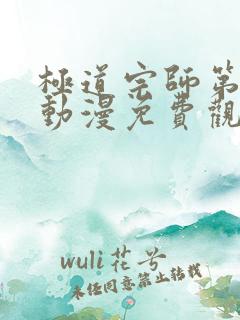 極道宗師第
動漫免費觀
wuli花兮
未经同意禁止转载